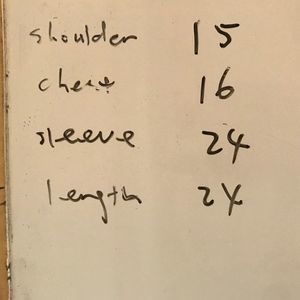 shoulder 15
chest 16
sleeve 24
length 24